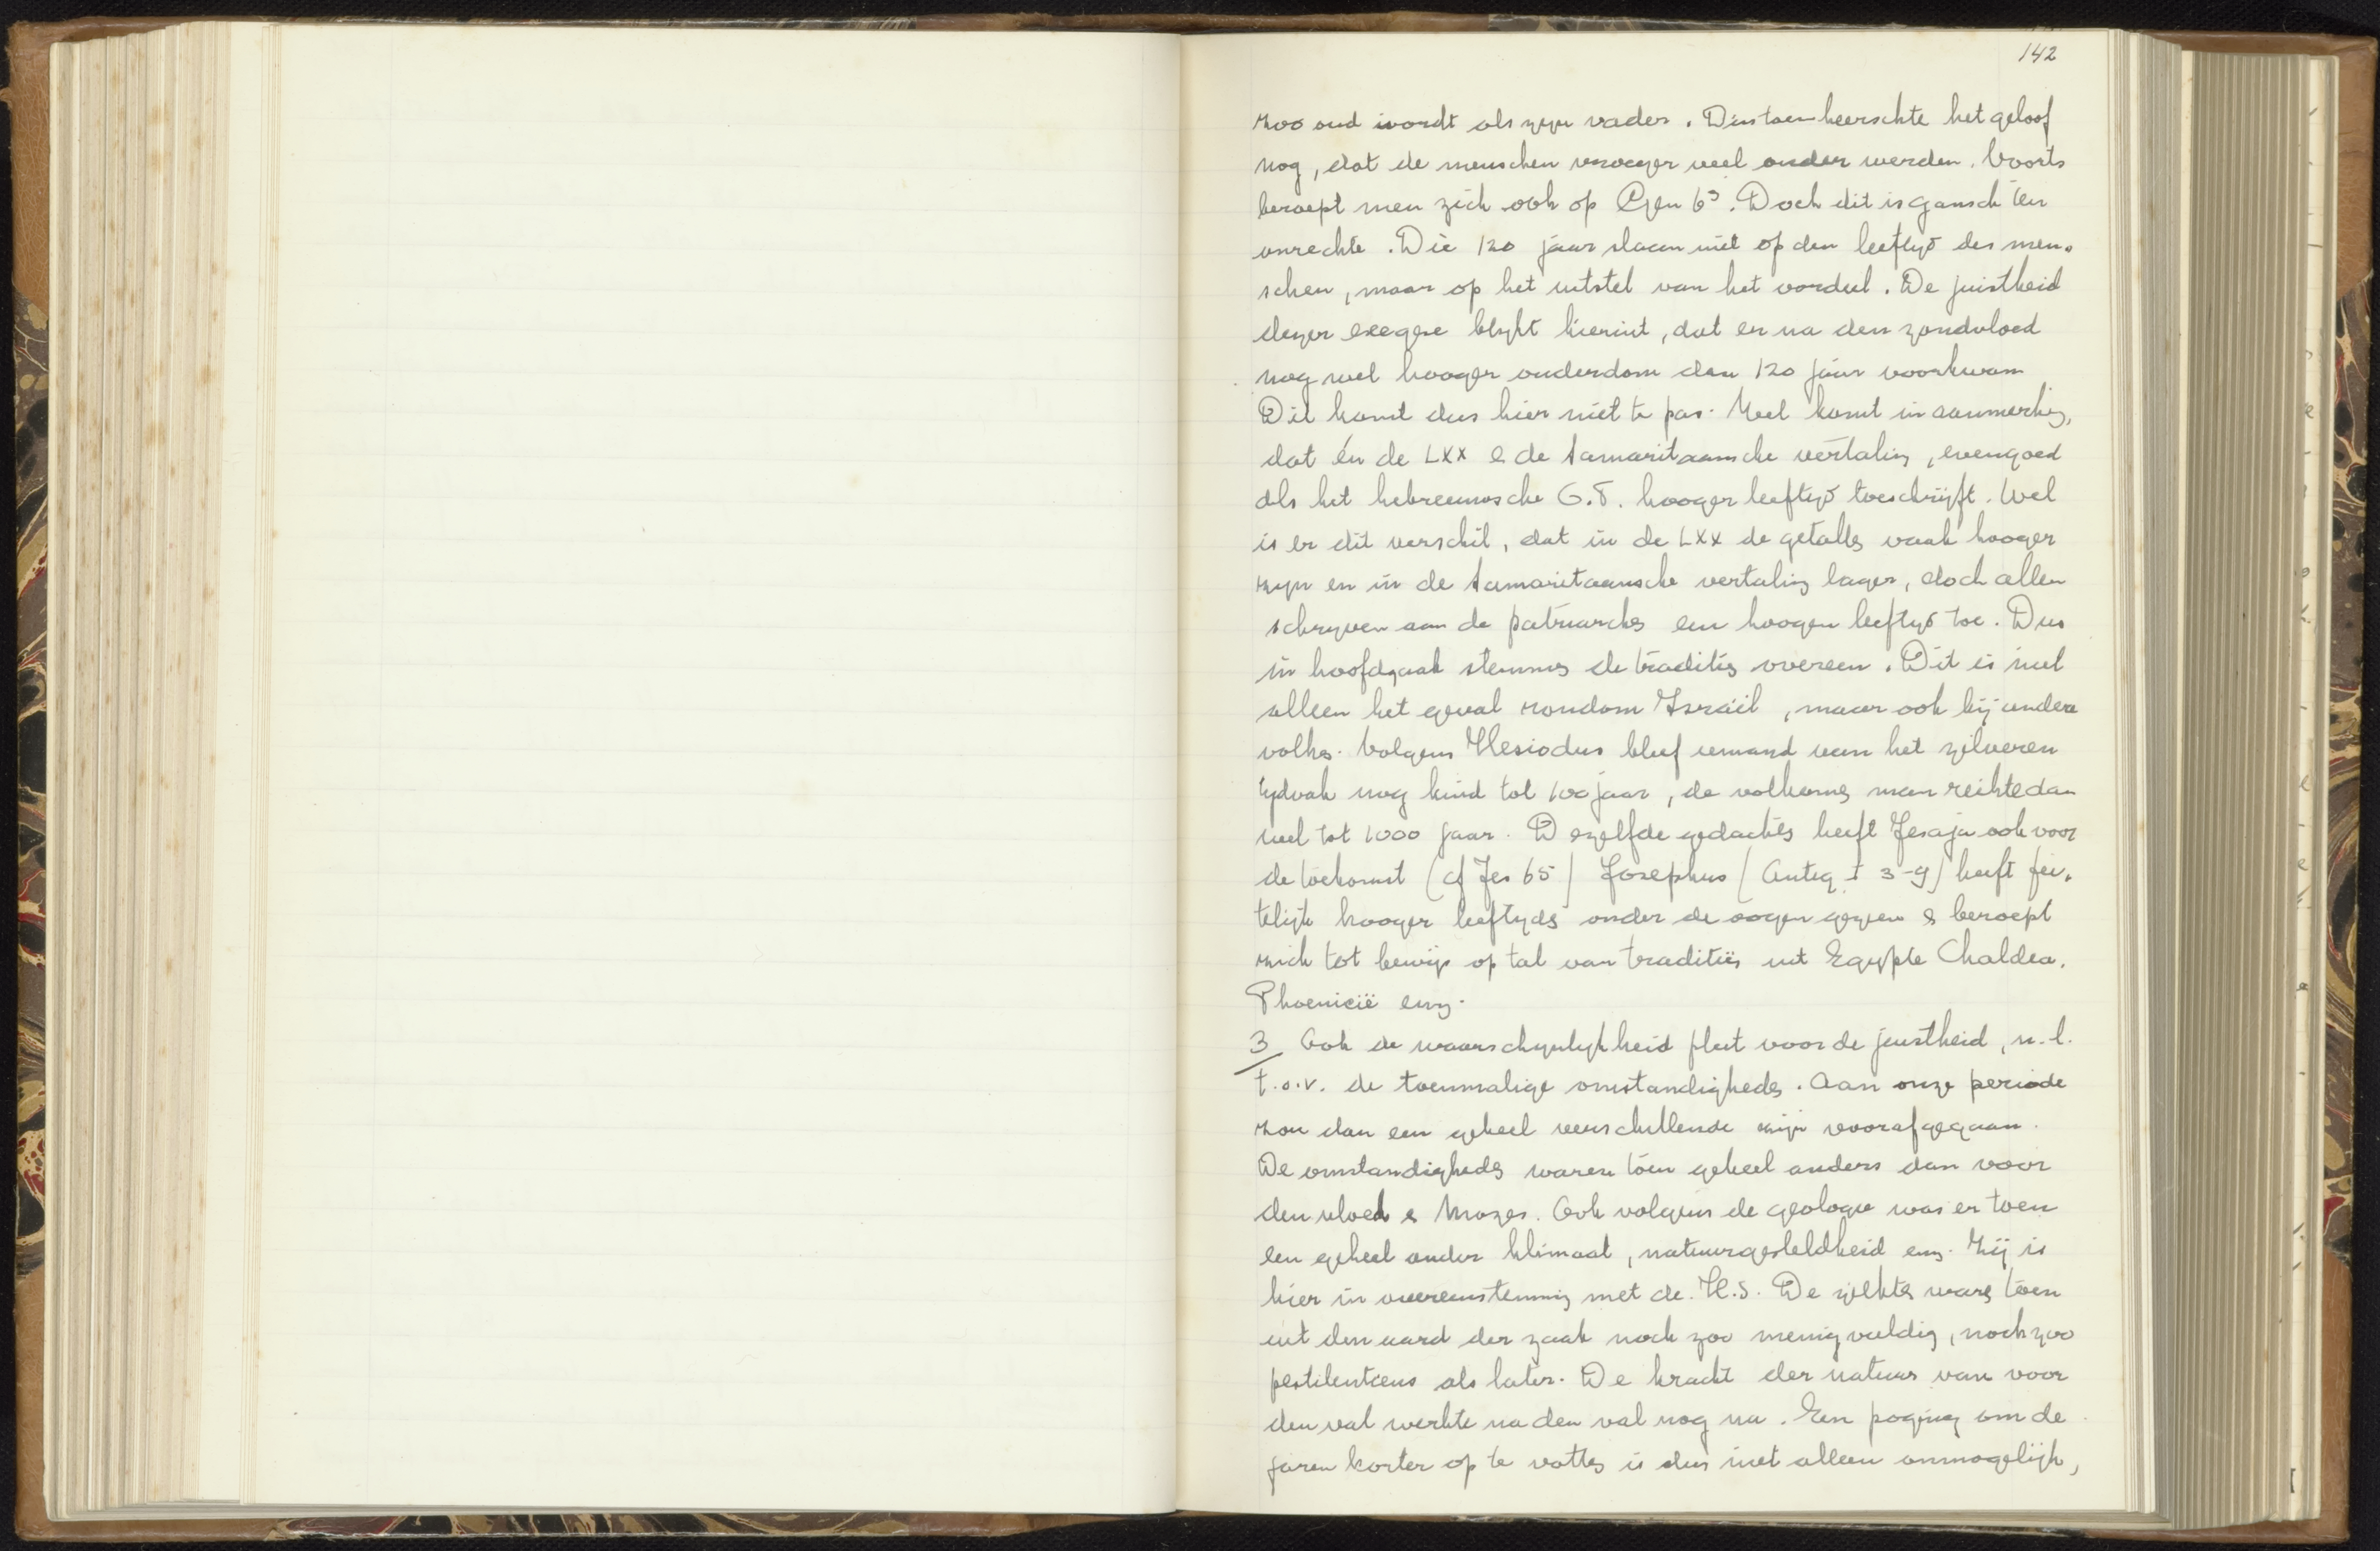 142
zoo oud wordt als zyn vader. Dus toen heerschte het geloof
nog, dat de menschen vroeger veel ouder werden. Voorts
beroept men zich ook op Gen 6³. Doch dit is gansch ten
onrechte. Die 120 jaar slaan niet op den leeftyd der men-
schen, maar op het uitstel van het oordeel. De juistheid
dezer exegese blykt hieruit, dat er na den zondvloed
nog wel hooger ouderdom dan 120 jaar voorkwam
Dit komt dus hier niet te pas. Veel komt in aanmerking,
dat én de LXX & de Samaritaansche vertaling, evengoed
als het hebreeuwsche O.T. hooger leeftyd toeschrijft. Wel
is er dit verschil, dat in de LXX de getallen vaak hooger
zyn en in de Samaritaansche vertaling lager, doch allen
schryven aan de patriarchen een hoogen leeftyd toe. Dus
in hoofdzaak stemmen de tradities overeen. Dit is niet
alleen het geval rondom Israël, maar ook bij andere
volken. Volgens Hesiodus bleef iemand van het zilveren
tydvak nog kind tot 100 jaar, de volkomen man reikte dan
wel tot 1000 jaar. Dezelfde gedachten heeft Jesaja ook voor
de toekomst (cf Jes 65) Josephus (Antiq I 3-9) heeft fei-
telijk hooger leeftyds onder de oogen gezien & beroept
zich tot bewijs op tal van tradities uit Egypte Chaldea.
Phoenicië enz.
3 Ook de waarschynlykheid pleit voor de juistheid, n.l.
t.o.v. de toenmalige omstandigheden. Aan onze periode
zou dan een geheel verschillende zijn voorafgegaan.
De omstandigheden waren toen geheel anders dan voor
den vloed & Mozes. Ook volgens de geologie was er toen
een geheel ander klimaat, natuurgesteldheid enz. Zij is
hier in overeenstemming met de H.S. De ziekten waren toen
uit den aard der zaak noch zoo menigvuldig, noch zoo
pestilentieus als later. De kracht der natuur van voor
den val werkte na den val nog na. Een poging om de
jaren korter op te vatten is dus niet alleen onmogelijk,